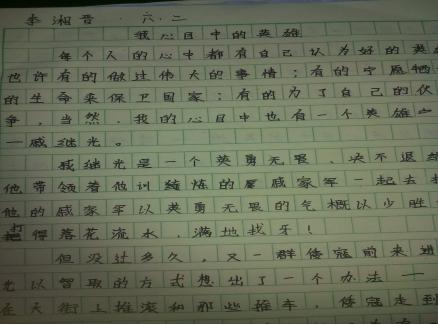 李湘晋 . 六.二
我心目中的英雄
每个人的心中都有自己认为好的英
也许有的做过伟大的事情；有的宁愿牺
的生命来保卫国家；有的为了自己的伙
争，当然，我的心目中也有一个英雄—
—戚继光。
戚继光是一个英勇无畏、决不退缩
他带领着他训练炼的戚家军一起去
他的戚家军以英勇无畏的气概以少胜
打得落花流水，满地找牙！
但没过多久，又一群倭寇前来进
光以智取的方式想出了一个办法——
在大街上推滚和那些推车，倭寇走到